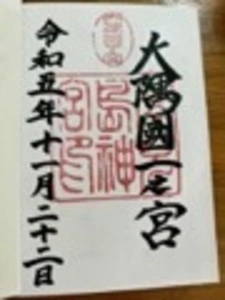 大隅國一之宮
島神
宮印
令和五年十一月二十二日